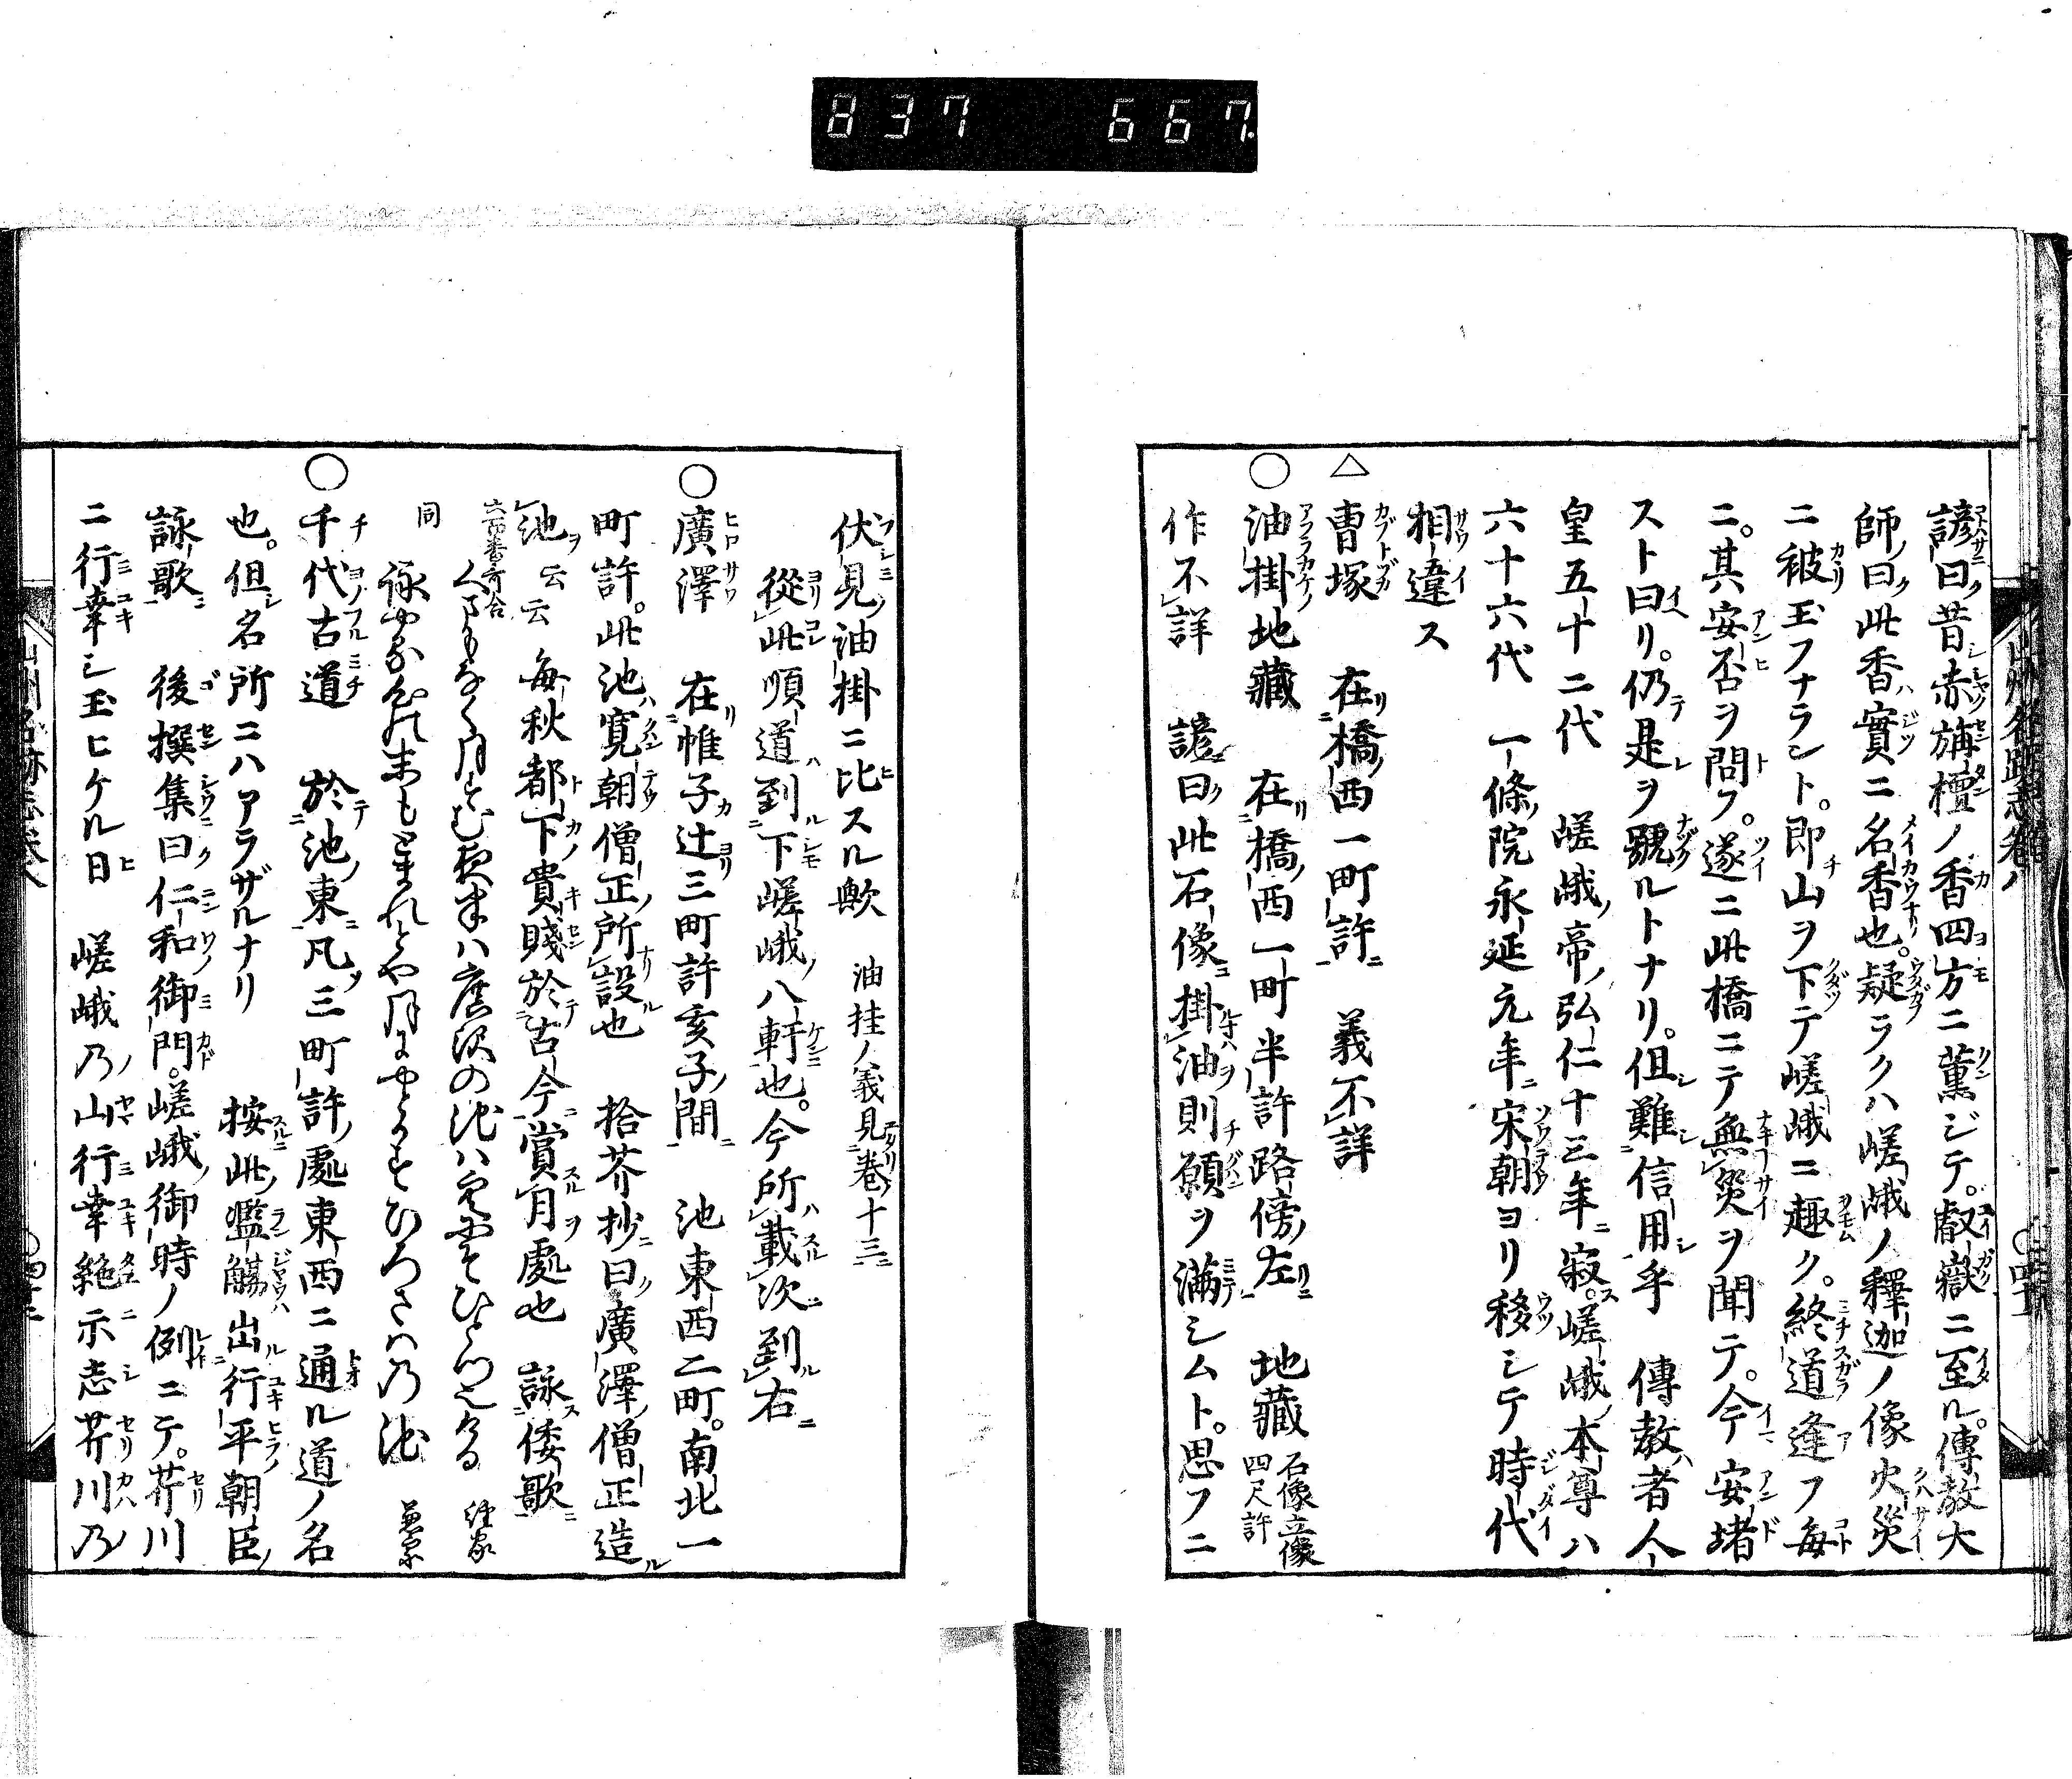 837 667
諺曰昔赤栴檀ノ香四方ニ薫ジテ。叡嶽ニ至ル。傳教大
師曰此香實ニ名香也。疑ラクハ嵯峨ノ釋迦ノ像火災
ニ被玉フナラント。即山ヲ下テ嵯峨ニ趣ク。終道逢フ毎
ニ。其安否ヲ問フ。遂ニ此橋ニテ無災ヲ聞テ。今安堵
スト曰リ。仍是ヲ號ルトナリ。但難信用乎 傳教者人
皇五十二代 嵯峨帝弘仁十三年寂。嵯峨本尊ハ
六十六代 一條院永延元年宋朝ヨリ移シテ時代
相違ス
△曹塚 在橋西一町許 義不詳
○油掛地藏 在橋西一町半許路傍左 地藏 石像立像四尺許
作不詳 諺曰此石像掛油則願ヲ滿シムト。思フニ
伏見油掛ニ比スル歟 油挂ノ義見巻十三
從此順道到下嵯峨八軒也。今所載次到右
○廣澤 在帷子辻三町許亥子間 池東西二町。南北一
町許。此池寛朝僧正所設也 拾芥抄曰廣澤僧正造
池云云 毎秋都下貴賤於古今賞月處也 詠倭歌
六百番哥合
同
○千代古道 於池東凡三町許處東西ニ通ル道ノ名
也。但名所ニハアラザルナリ 按此濫觴出行平朝臣
詠歌 後撰集曰仁和御門。嵯峨御時ノ例ニテ。芹川
ニ行幸シ玉ヒケル日 嵯峨乃山行幸絶示志芹川乃